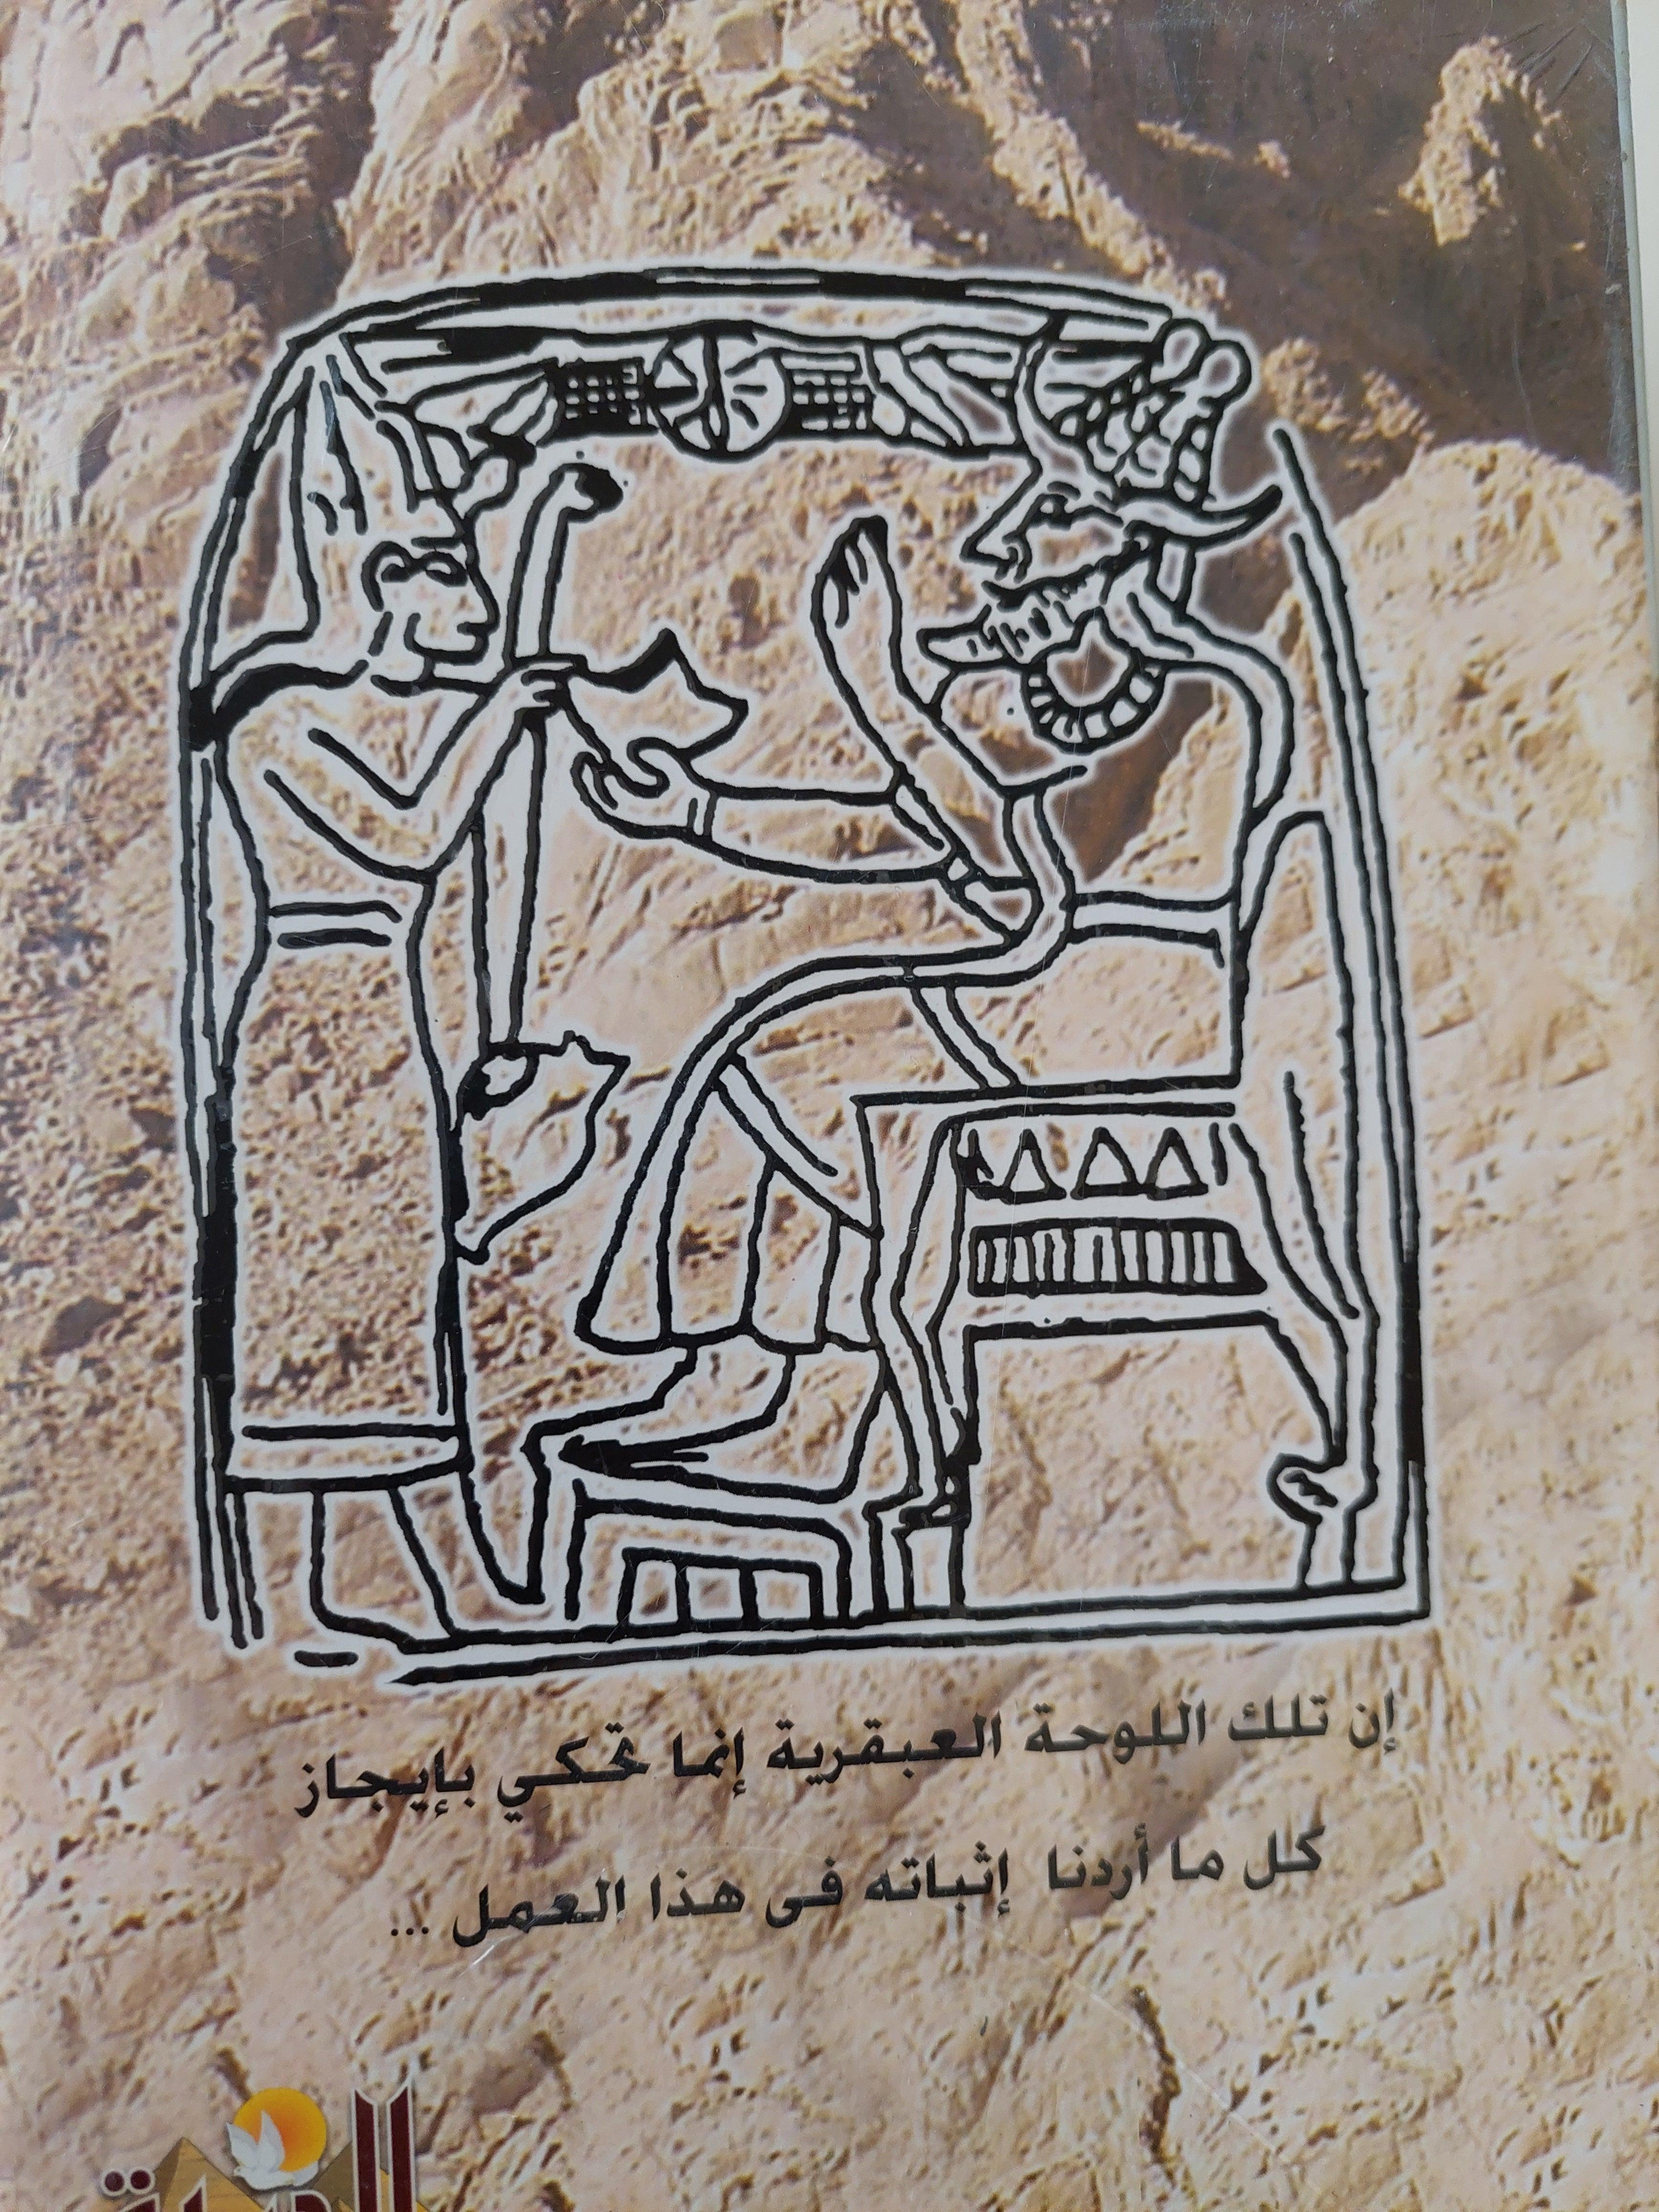 إن تلك اللوحة العبقرية إنما تحكي بإيجاز
كل ما أردنا إثباته فى هذا العمل ...